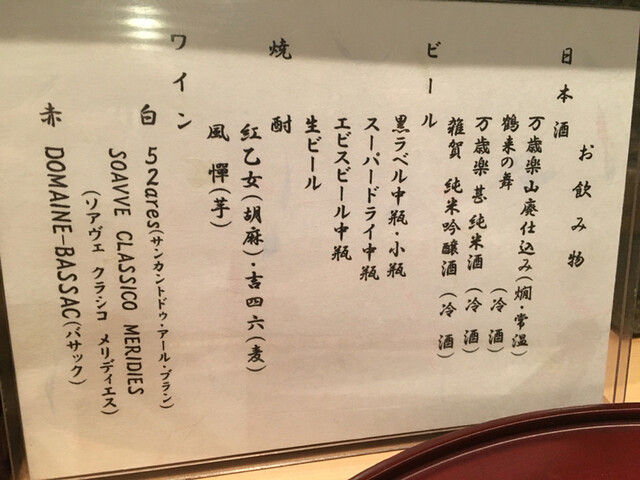 お飲み物
日本酒
万歳楽山廃仕込み(燗・常温)
鶴来の舞 (冷酒)
万歳楽 甚 純米酒 (冷酒)
雑賀 純米吟醸酒 (冷酒)
ビール
黒ラベル中瓶・小瓶
スーパードライ中瓶
エビスビール中瓶
生ビール
焼酎
紅乙女(胡麻)・吉四六(麦)
風憚(芋)
ワイン
白 52ares(サンカントドゥ・アール・ブラン)
SOAVVE CLASSICO MERIDIES
(ソアヴェ クラシコ メリディエス)
赤 DOMAINE-BASSAC(バサック)